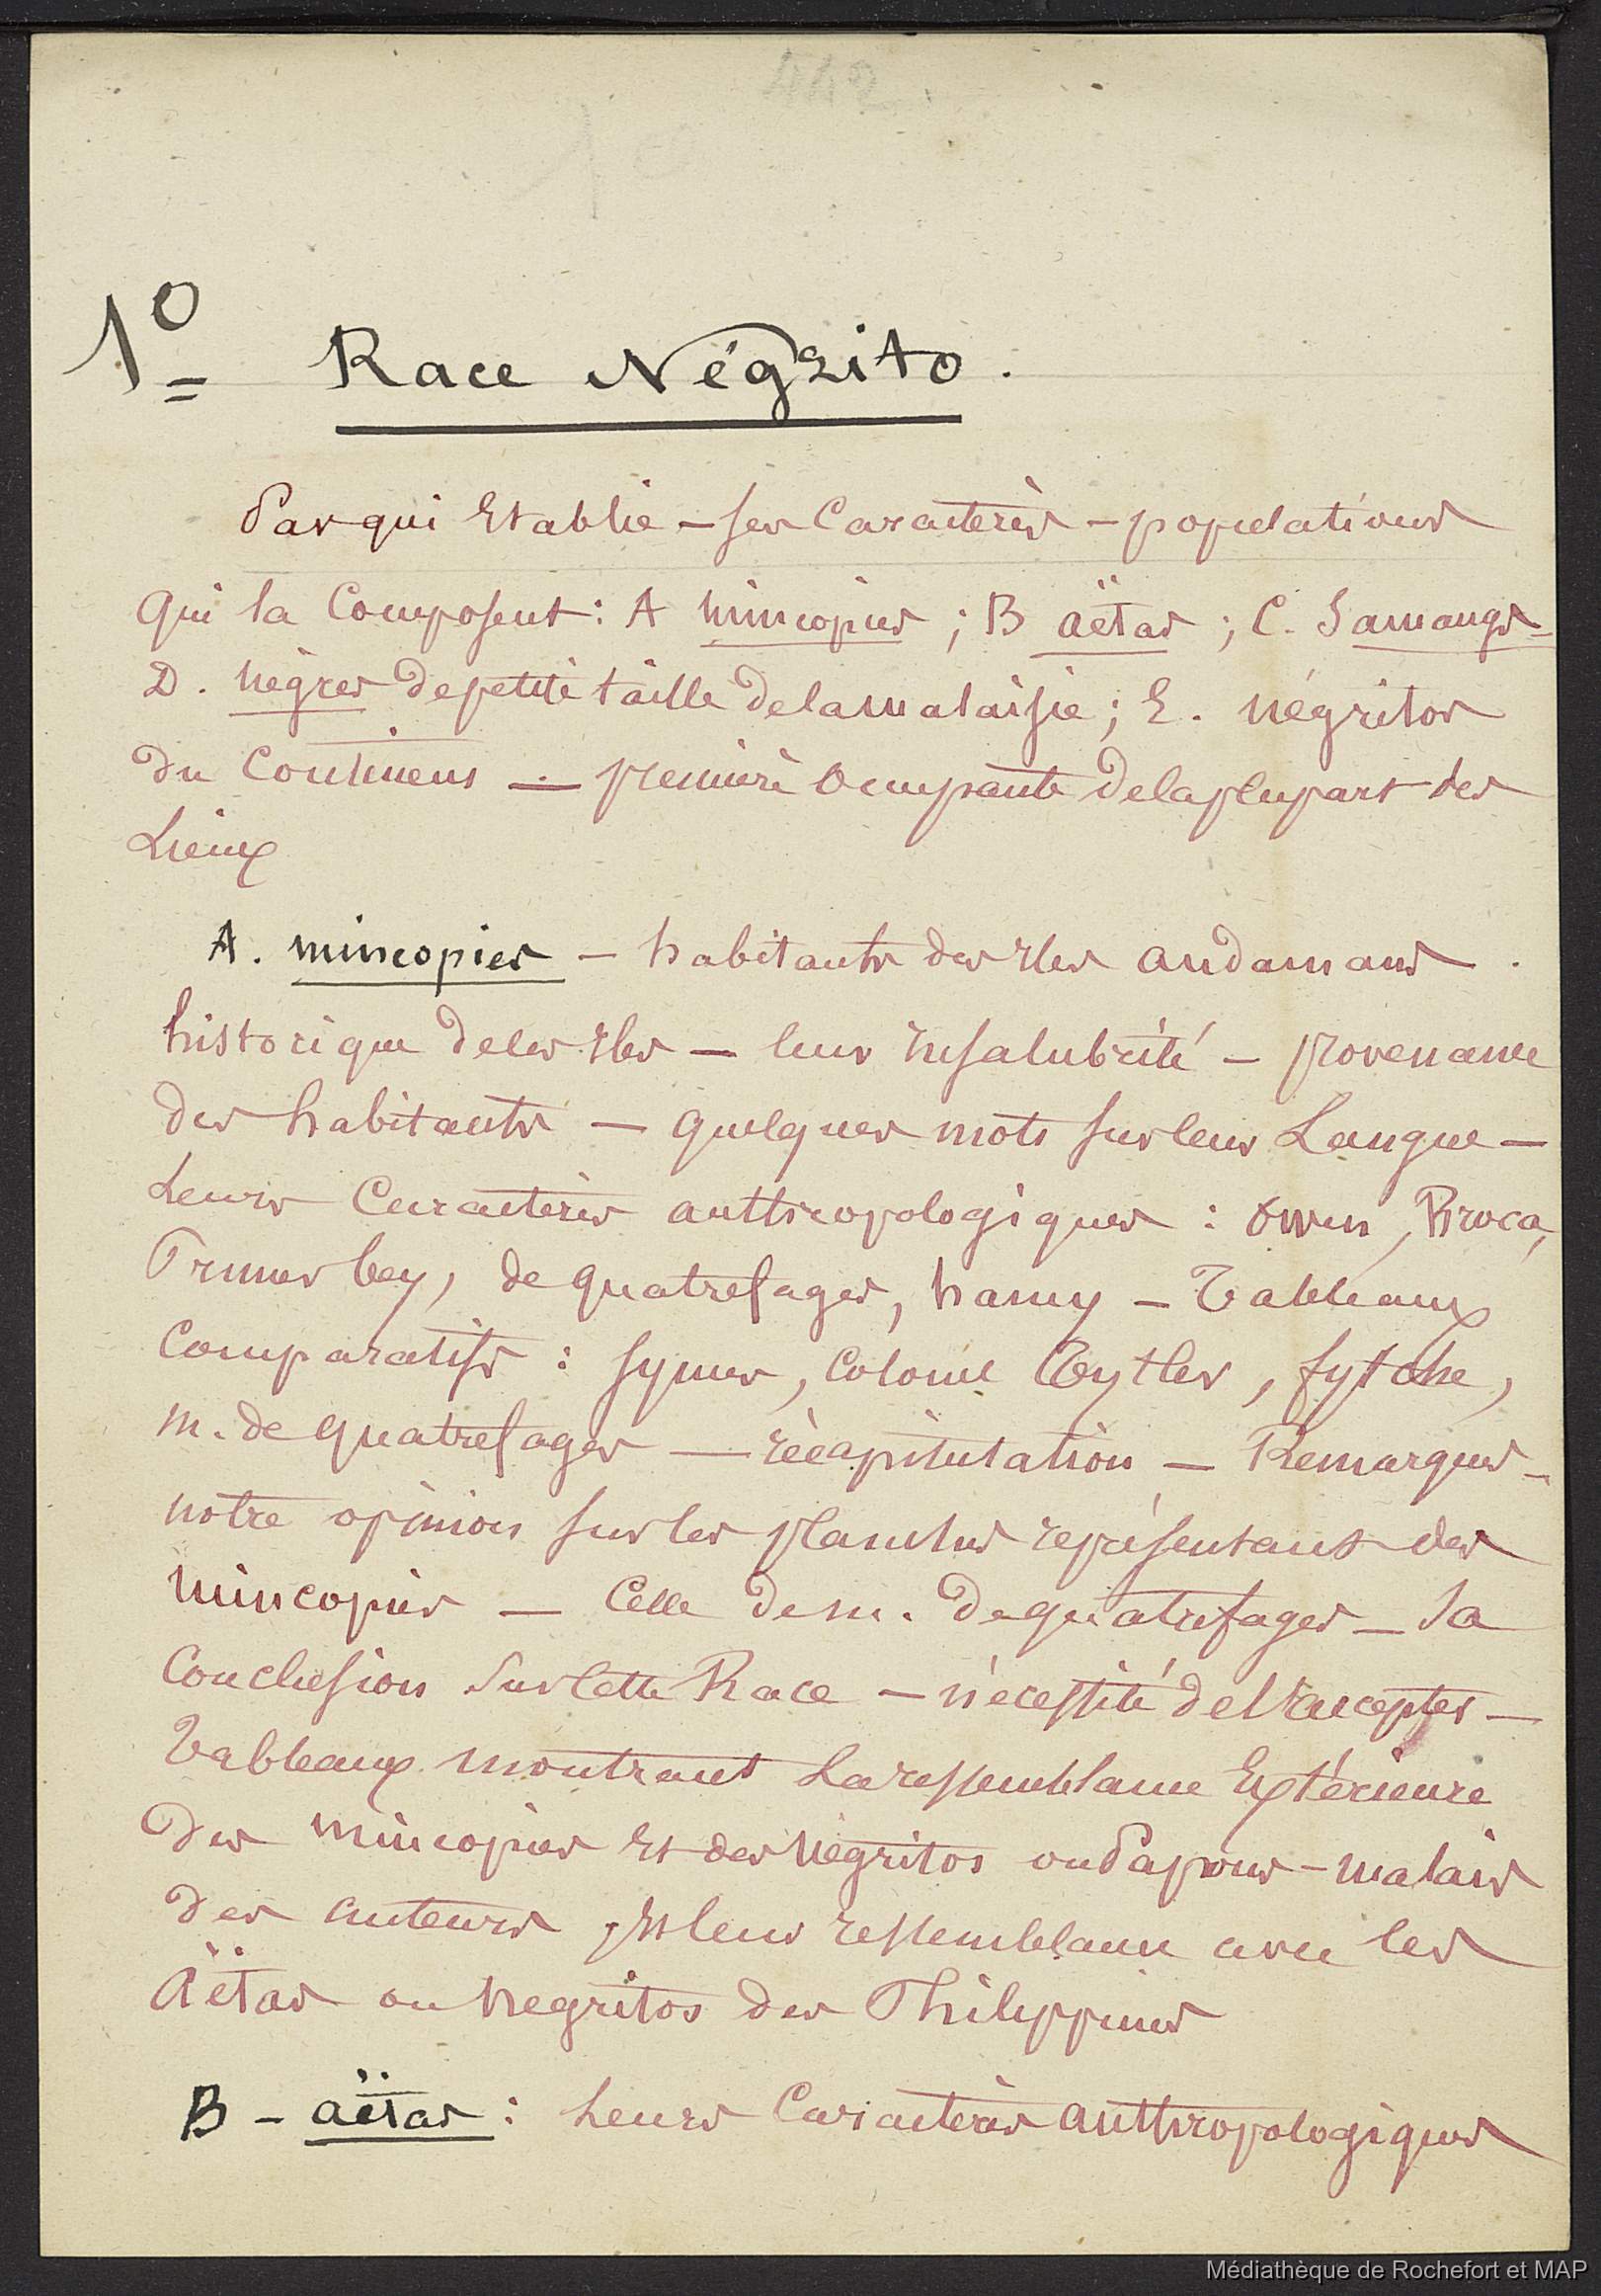 112
1º Race Négrito.
Par qui Etablie – ses Caractères – populations
qui la Composent : A mincopies ; B aëtas ; C. Samangs –
D. nègres de petite taille de la malaisie ; E. négritos
du Continent — première occupante de la plupart des
Lieux
A. mincopies – habitants des Iles andamans.
historique de ces Iles — leur insalubrité – provenance
des habitants — quelques mots sur leur Langue –
Leurs Caractères anthropologiques : owen, Broca,
Pruner bey, de quatrefages, hamy – Tableaux
Comparatifs : symes, Colonel Tytler, fytche,
m. de quatrefages — récapitulation – Remarques –
notre opinion sur les planches représentant des
mincopies — Celle de m. de quatrefages – Sa
Conclusion Sur Cette Race – nécessité de l'accepter –
Tableaux montrant La ressemblance Extérieure
des mincopies Et des négritos ou Papous – malais
des auteurs, Et leur ressemblance avec les
Aëtas ou negritos des Philippines
B – aëtas : Leurs Caractères anthropologiques
Médiathèque de Rochefort et MAP